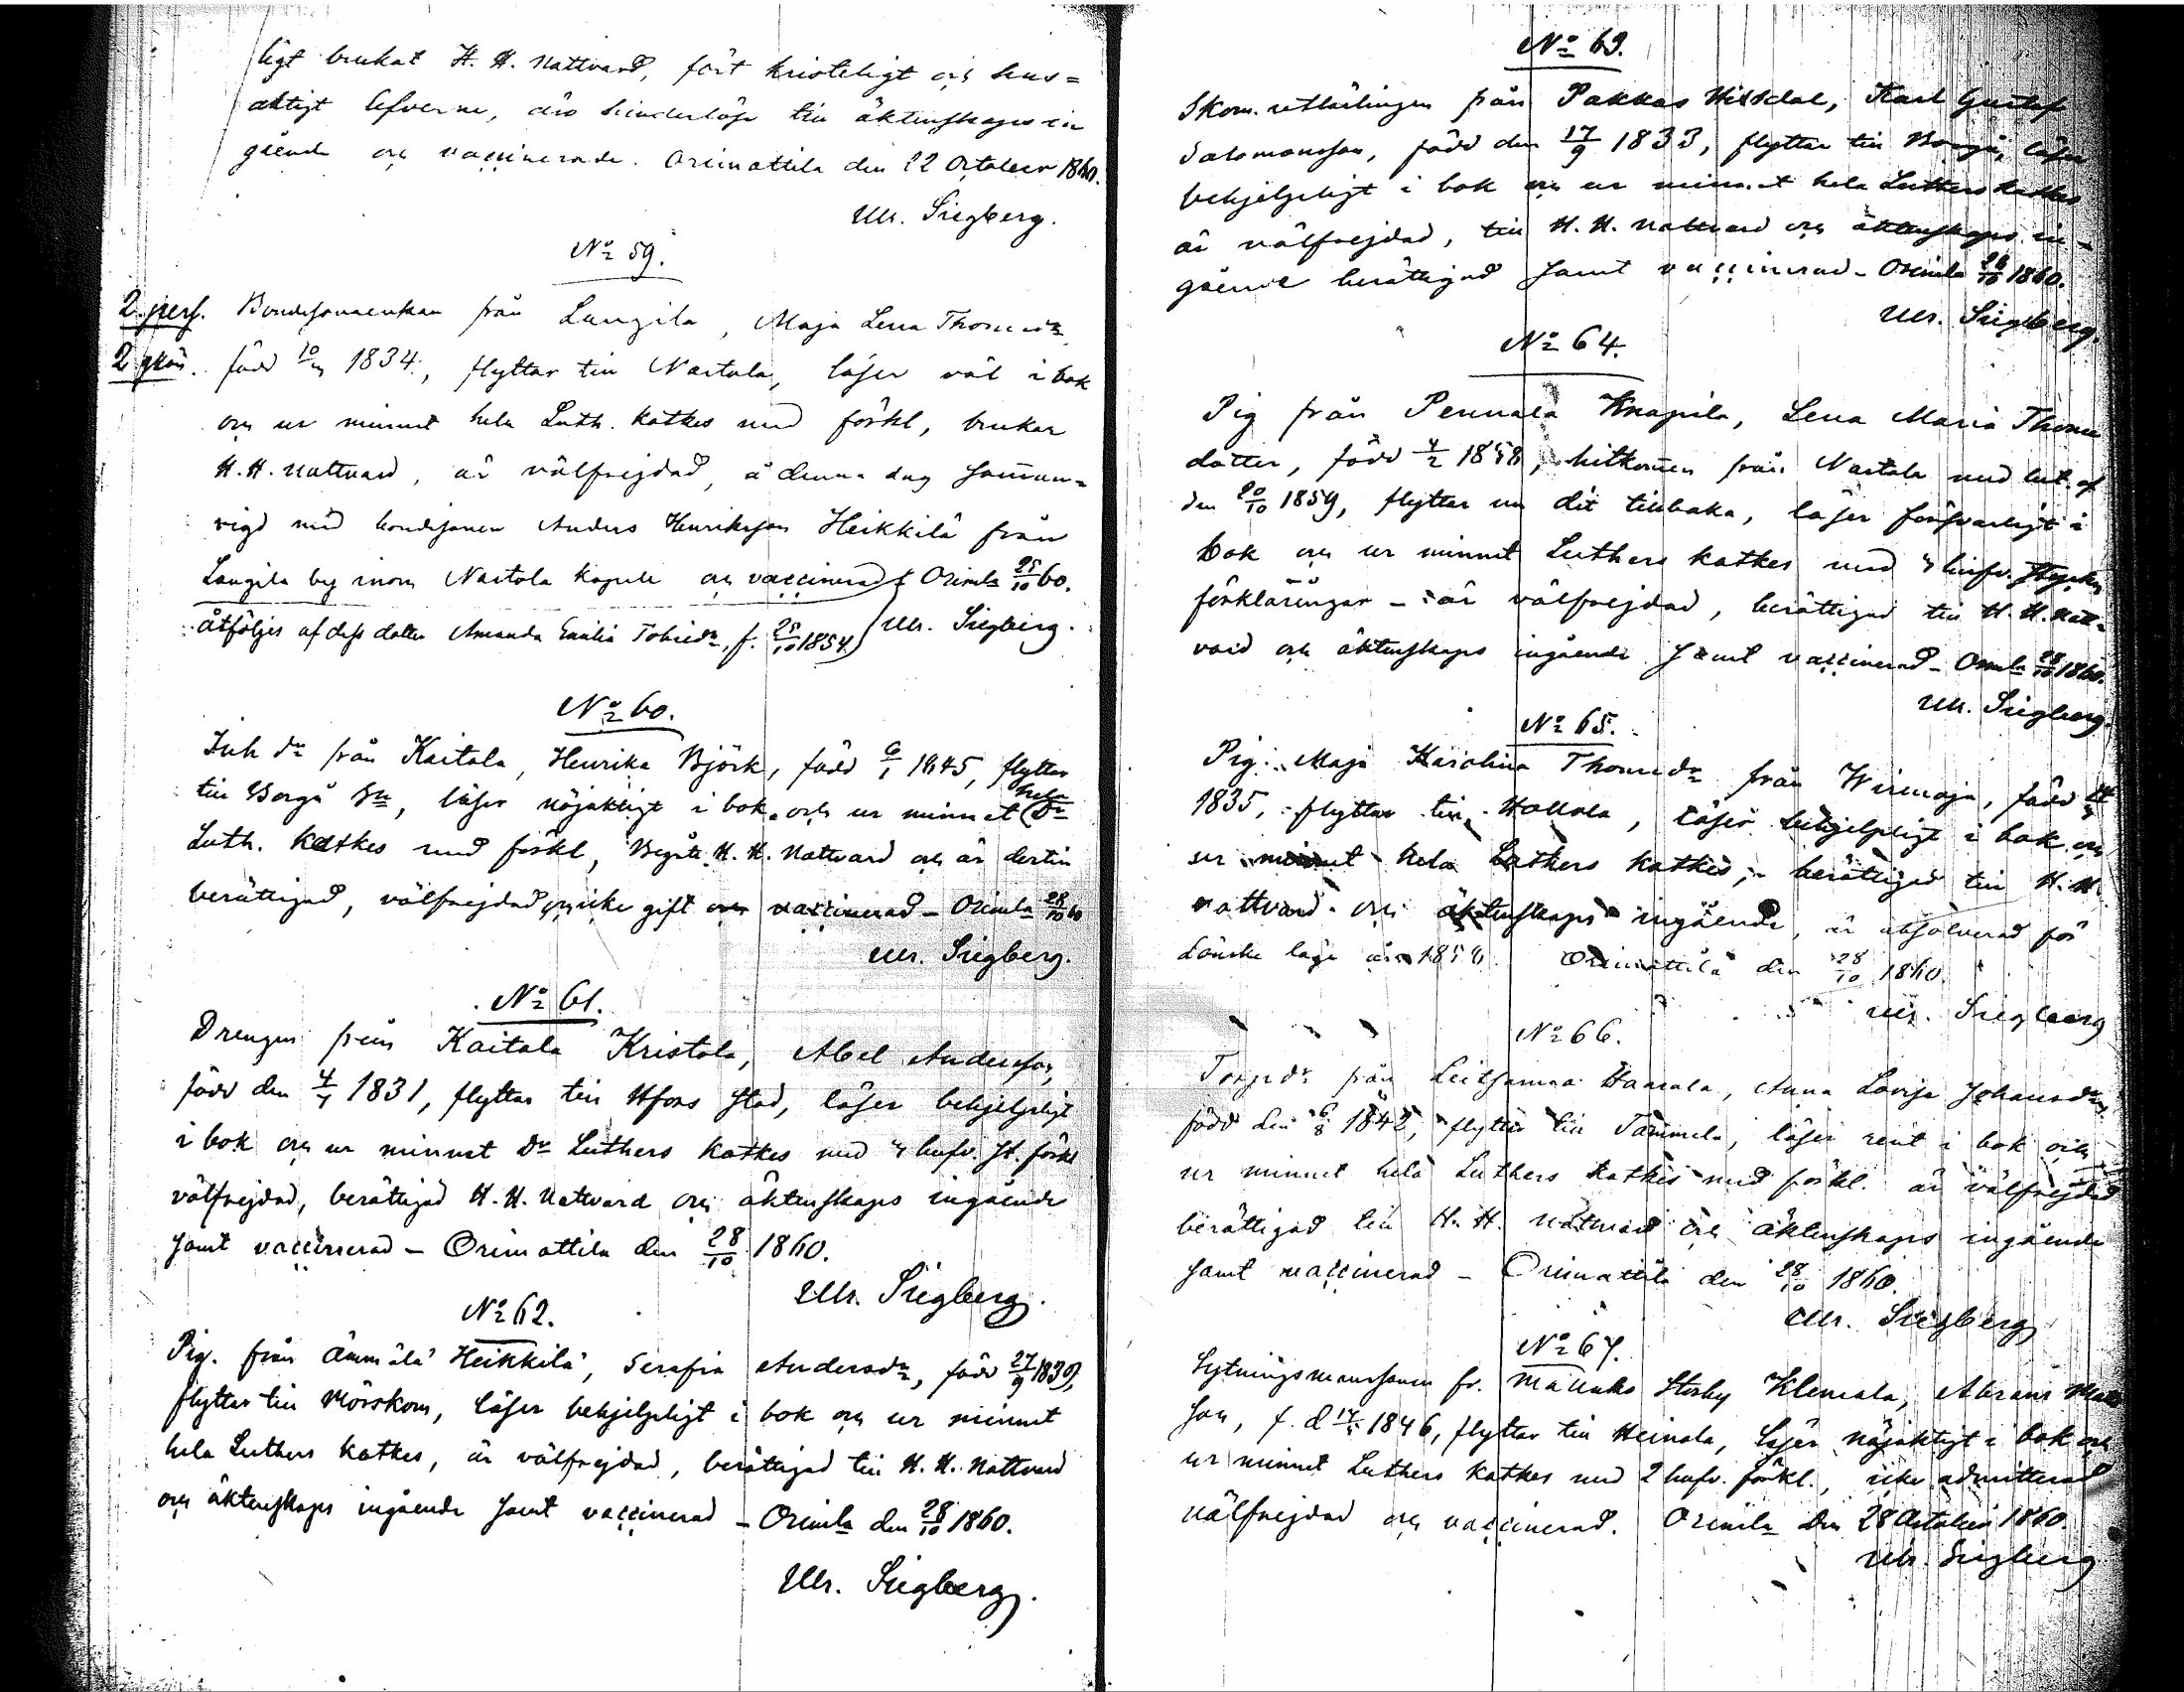 ligt brukat H. H. Nattvard, fört kristeligt och hus=
aktigt lefverne, äro hinderlöse till äktenskaps in
gående och vaccinerade. Orimattila den 22 October 1860.
Ulr. Siegberg.
No 59.
2 pers. Bondesonsenkan från Langila, Maja Lena Thomsdr
2 qkön. född 1834, flyttar till Nastola, läser väl i bok
och ur minnet hela Luth. katkes med förkl, brukar
H. H. Nattvard, är välfrejdad, å denna dag samman=
vigd med bondesonen Anders Henriksson Heikkilä från
Langila by inom Nastola kapell och vaccinerad Orimla 25/10 60.
åtföljes af dess dotter Amanda Emilia Tobiedr, f. 25/10 1854 Ulr. Siegberg.
No 60.
Inh dr från Kaitala, Henrika Björk, född 6/1 1845, flyttar
till Borgå Sn, läser nöjaktigt i bok och ur minnet hela Dr
Luth. Katkes med förkl, Begått H. H. Nattvard och är dertill
berättigad, välfrejdad, och icke gift och vaccinerad - Orimla 28/10 60
Ulr. Siegberg.
No 61.
Drengen från Kaitala Kristola, Abel Andersson,
född den 4/4 1831, flyttar till Hfors stad, läser behjelpligt
i bok och ur minnet Dr Luthers Katkes med hufv. st. förkl
välfrejdad, berättigad H. H. Nattvard och äktenskaps ingående
samt vaccinerad - Orimattila den 28/10 1860.
Ulr. Siegberg.
No 62.
Pig. från Ämmälä Heikkilä, Serafia Andersdr, född 27/9 1839,
flyttar till Mörskom, läser behjelpligt i bok och ur minnet
hela Luthers Katkes, är välfrejdad, berättigad till H. H. Nattvard
och äktenskaps ingående samt vaccinerad - Orimla den 28/10 1860.
Ulr. Siegberg.
No 63.
Skom. utlärlingen från Pakkas Hirsdal, Karl Gustaf
Salomonsson, född den 17/9 1833, flyttar till Borgå, läser
behjelpligt i bok och ur minnet hela Luthers katkes
är välfrejdad, till H. H. Nattvard och äktenskaps in-
gående berättigad samt vaccinerad - Orimla 28/10 1860.
Ulr. Siegberg.
No 64.
Pig från Pennala Knapila, Lena Maria Thoms
dotter, född 4/2 1838, hitkommen från Nastola med bet. af
den 20/10 1859, flyttar nu dit tillbaka, läser försvarligt i
bok och ur minnet Luthers katkes med hufv. stycken
förklaringar - är välfrejdad, berättigad till H. H. Natt=
vard och äktenskaps ingående samt vaccinerad - Orimla 28/10 1860.
Ulr. Siegberg.
No 65.
Pig. Maja Karolina Thomsdr från Wirenoja, född
1835, flyttar till Hollola, läser behjelpligt i bok och
ur minnet hela Luthers katkes, berättigad till H. H.
nattvard och äktenskaps ingående, är absolverad för
lönskeläge år Orimattila den 28/10 1860.
Ulr. Siegberg
No 66.
Torpdr från Leitsamaa Haarala, Anna Lovisa Johansdr,
född den 6/8 1842, flyttar till Tammela, läser rent i bok och
ur minnet hela Luthers katkes med förkl. är välfrejdad
berättigad till H. H. nattvard och äktenskaps ingående
samt vaccinerad - Orimattila den 28/10 1860.
Ulr. Siegberg
No 67.
Lytningsmanssonen fr. Mallusko Storby Klemola, Abram Matts
son, f. d 1846, flyttar till Heinola, läser nöjaktigt i bok och
ur minnet Luthers katkes med 2 hufv. förkl., icke admitterad
välfrejdad och vaccinerad. Orimla den 28 October 1860.
Ulr. Siegberg